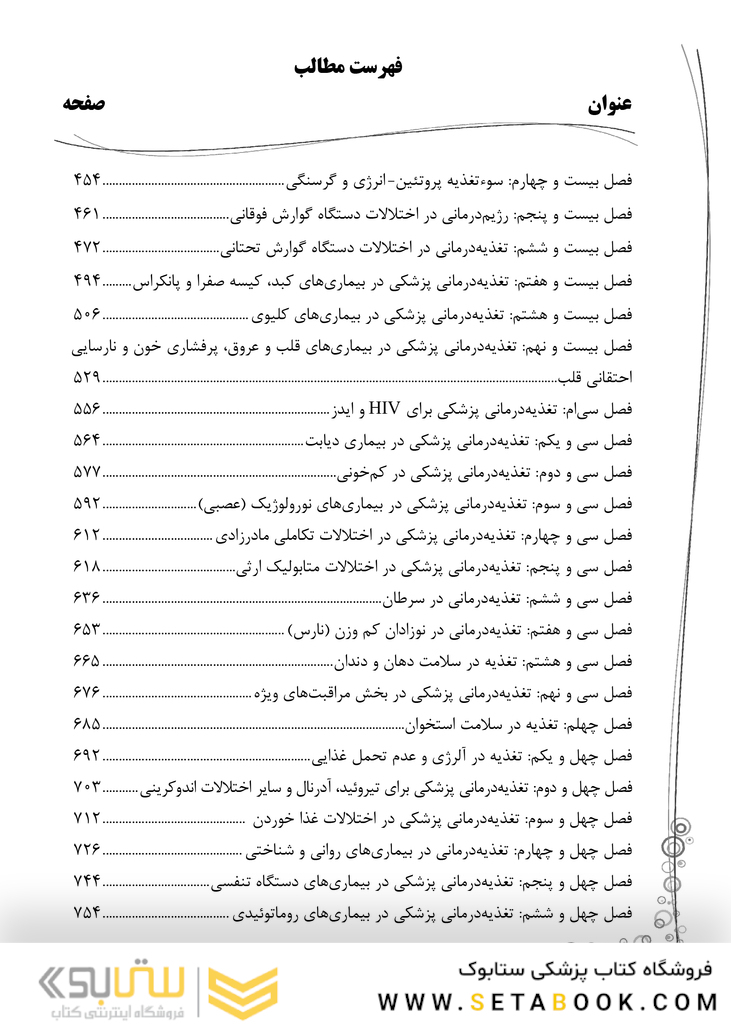 فهرست مطالب
عنوان صفحه
فصل بیست و چهارم: سوءتغذیه پروتئین-انرژی و گرسنگی ........ ۴۵۴
فصل بیست و پنجم: رژیم‌درمانی در اختلالات دستگاه گوارش فوقانی ........ ۴۶۱
فصل بیست و ششم: تغذیه‌درمانی در اختلالات دستگاه گوارش تحتانی ........ ۴۷۲
فصل بیست و هفتم: تغذیه‌درمانی پزشکی در بیماری‌های کبد، کیسه صفرا و پانکراس ........ ۴۹۴
فصل بیست و هشتم: تغذیه‌درمانی پزشکی در بیماری‌های کلیوی ........ ۵۰۶
فصل بیست و نهم: تغذیه‌درمانی پزشکی در بیماری‌های قلب و عروق، پرفشاری خون و نارسایی
احتقانی قلب ........ ۵۲۹
فصل سی‌ام: تغذیه‌درمانی پزشکی برای HIV و ایدز ........ ۵۵۶
فصل سی و یکم: تغذیه‌درمانی پزشکی در بیماری دیابت ........ ۵۶۴
فصل سی و دوم: تغذیه‌درمانی پزشکی در کم‌خونی ........ ۵۷۷
فصل سی و سوم: تغذیه‌درمانی پزشکی در بیماری‌های نورولوژیک (عصبی) ........ ۵۹۲
فصل سی و چهارم: تغذیه‌درمانی پزشکی در اختلالات تکاملی مادرزادی ........ ۶۱۲
فصل سی و پنجم: تغذیه‌درمانی پزشکی در اختلالات متابولیک ارثی ........ ۶۱۸
فصل سی و ششم: تغذیه‌درمانی در سرطان ........ ۶۳۶
فصل سی و هفتم: تغذیه‌درمانی در نوزادان کم وزن (نارس) ........ ۶۵۳
فصل سی و هشتم: تغذیه در سلامت دهان و دندان ........ ۶۶۵
فصل سی و نهم: تغذیه‌درمانی پزشکی در بخش مراقبت‌های ویژه ........ ۶۷۶
فصل چهلم: تغذیه در سلامت استخوان ........ ۶۸۵
فصل چهل و یکم: تغذیه در آلرژی و عدم تحمل غذایی ........ ۶۹۲
فصل چهل و دوم: تغذیه‌درمانی پزشکی برای تیروئید، آدرنال و سایر اختلالات اندوکرینی ........ ۷۰۳
فصل چهل و سوم: تغذیه‌درمانی پزشکی در اختلالات غذا خوردن ........ ۷۱۲
فصل چهل و چهارم: تغذیه‌درمانی در بیماری‌های روانی و شناختی ........ ۷۲۶
فصل چهل و پنجم: تغذیه‌درمانی پزشکی در بیماری‌های دستگاه تنفسی ........ ۷۴۴
فصل چهل و ششم: تغذیه‌درمانی پزشکی در بیماری‌های روماتوئیدی ........ ۷۵۴
فروشگاه کتاب پزشکی ستابوک
WWW.SETABOOK.COM
ستابوک
فروشگاه اینترنتی کتاب